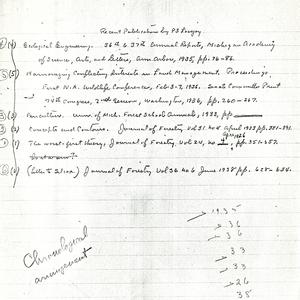 Recent Publications by PS Lovejoy
(4) Ecological Engineering. 36th & 37th Annual Reports, Michigan Academy
of Science, Arts, and Letters, Ann Arbor, 1935, pp. 76-86.
(5) Harmonizing Conflicting Interests in Land Management. Proceedings,
First N.A. Wildlife Conference, Feb 3-7, 1936. Senate Committee Print
74th Congress, 2nd Session, Washington, 1936. pp. 260-267.
Univ. of Mich. Forest School Annual, 1933, pp
Concepts and Contours. Journal of Forestry Vol 31 No 4 April 1933 pp. 381-391.
The worst first theory, Journal of Forestry, Vol 24, No pp. 351-357.
(6) (Letter to Silcox) Journal of Forestry Vol 36 No 6 June 1938 pp. 628-634.
Chronological
arrangement
1935
36
36
33
33
26
38